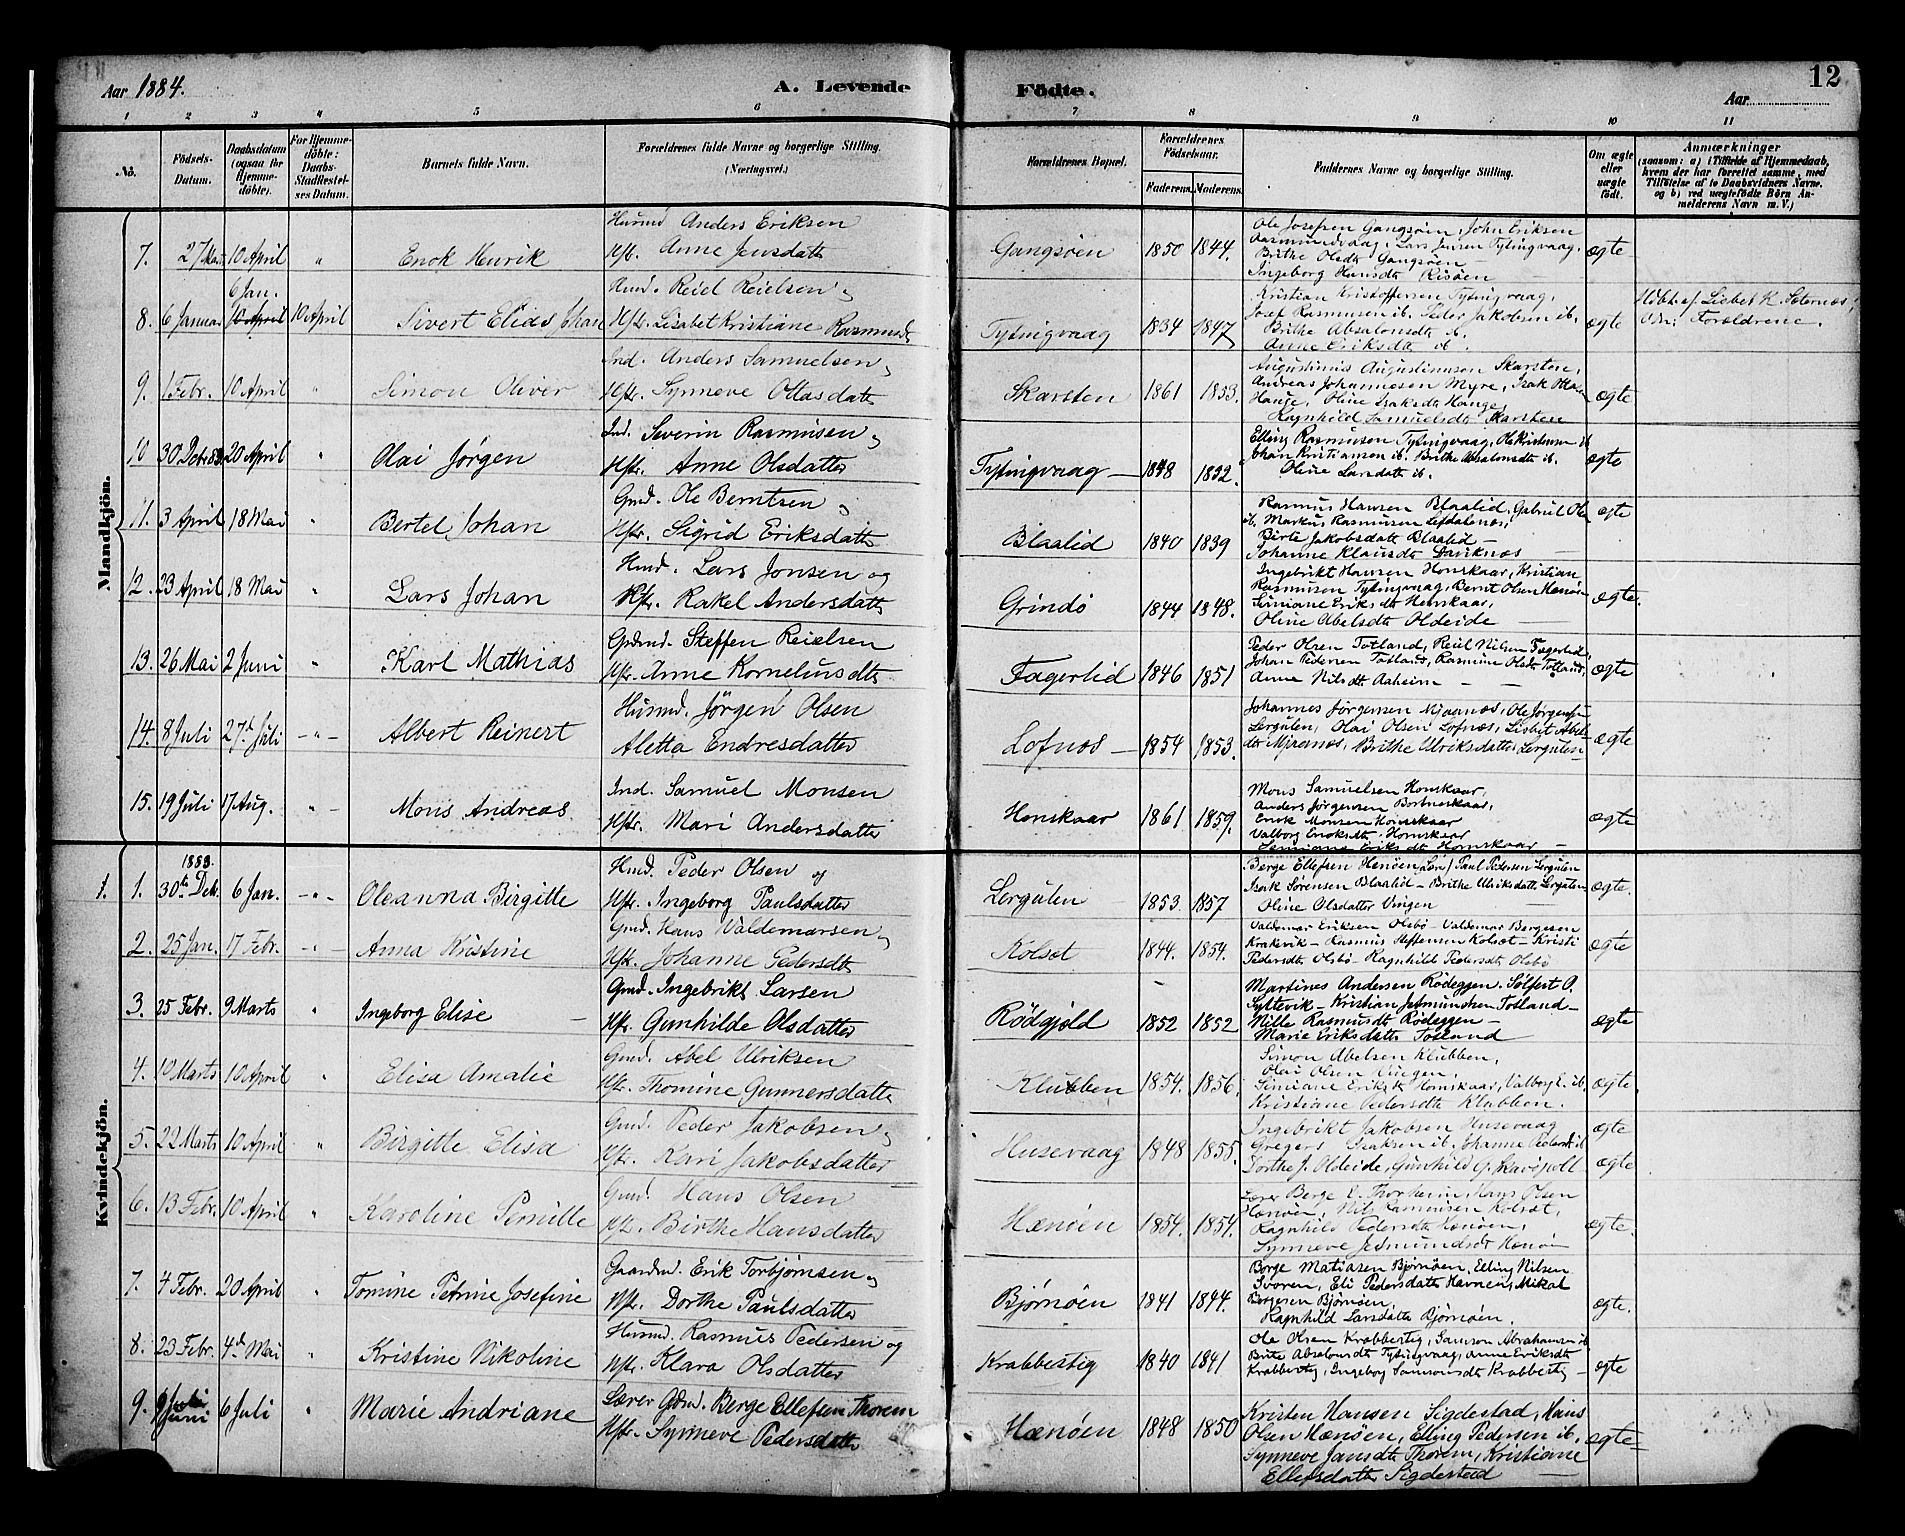 12
Aar 1884.
A. Levende
Födte.
Aar
1 2 3 4 5 6 7 8 9 10 11
No.
Födsels-Datum.
Daabsdatum (ogsaa for Hjemmedöbte).
For Hjemmedöbte: Daabs-Stadfæstelses Datum.
Barnets fulde Navn.
Forældrenes fulde Navne og borgerlige Stilling. (Næringsvei.)
Forældrenes Bopæl.
Forældrenes Födselsaar.
Faderens. Moderens.
Faddernes Navne og borgerlige Stilling.
Om ægte eller uægte födt.
Anmærkninger
(saasom: a) i Tilfælde af Hjemmedaab,
hvem der har forrettet samme, med
Tilföielse af to Daabsvidners Navne,
og b) ved uægtefödte Börn Anmelderens Navn m. V.)
Mandkjön.
7. 27 Mar 10 April " Enok Henrik
Husmd Anders Eriksen
Hst. Anne Jensdatter
Gangsøen 1850 1844.
Ole Josefsen Gangsøen, John Eriksen
Rasmundsvaag, Lars Jensen Tytingvaag,
Brithe Olsdt Gangsøen
Ingeborg Hansdt Risøen
ægte
8. 6 Januar 6 Jan. 10 April 10 April Sivert Elias Johan
Husmd. Reiel Reielsen og
Hstr. Lisabet Kristiane Rasmusdt
Tytingvaag 1834 1847
Kristian Kristoffersen Tytingvaag,
Josef Rasmusen ib. Peder Jakobsen ib.
Brithe Absalonsdt ib
Anne Eriksdt ib.
ægte
Hdbt. af Lisbet K. Soternæs,
Vdn: Foreldrene.
9. 1 Febr. 10 April " Simon Oliver
Ind. Anders Samuelsen og
Hstr. Synneve Ottasdatter
Skarsten 1861 1853.
Augustinus Augustinusen Skarsten,
Andreas Johannesen Myre, Isak Ottasen
Hauge, Oline Isaksdt Hauge,
Ragnhild Samuelsdt Skarsten
ægte
10 30 Decbr 83. 20 April " Olai Jørgen
Ind. Severin Rasmusen og
Hstr. Anne Olsdatter
Tytingvaag 1848 1852.
Elling Rasmusen Tytingvaag, Ole Kristensen ib
Johan Kristiansen ib. Brithe Absalonsdt ib.
Oline Larsdatter ib.
ægte
11. 3 April 18 Mai " Bertel Johan
Gmd. Ole Berntsen og
Hstr. Sigrid Eriksdatter
Blaalid 1840 1839
Rasmus Hansen Blaalid, Gabriel Olsen
ib. Markus Rasmusen Lefdalsnæs,
Birte Jakobsdatter Blaalid
Johanne Klausdt Daviknæs
ægte
12. 23 April 18 Mai " Lars Johan
Husmd. Lars Jonsen og
Hstr. Rakel Andersdatter
Grindø 1844 1848.
Ingebrikt Hansen Honskaar, Kristian
Rasmusen Tytingvaag, Bernt Olsen Hænøen
Simiane Eriksdt Honskaar,
Oline Abelsdt Oldeide
ægte.
13. 26 Mai 2 Juni " Karl Mathias
Grdmd. Steffen Reielsen
Hstr. Anne Kornelinsdtr
Fagerlid 1846 1851
Peder Olsen Totland, Reiel Nilsen Fagerlid
Johan Pedersen Totland, Rasmine Olsdtr Totland,
Anne Nilsdt Aaheim
ægte
14. 8 Juli 27d Juli " Albert Reinert
Husmd. Jørgen Olsen
Aletta Endresdatter
Lofnæs 1854 1853.
Johannes Jørgensen Myranæs, Ole Jørgensen
Lergulen, Olai Olsen Lofnæs, Lisbet Abels-
dtr Myranæs, Brithe Ulriksdatter Lergulen
ægte
15. 19 Juli 17 Aug. " Mons Andreas
Ind. Samuel Monsen
Hstr. Mari Andersdatter
Honskaar 1861 1859.
Mons Samuelsen Honskaar,
Anders Jørgensen Bortneskaar,
Enok Monsen Honskaar
Valborg Enoksdtr. Honskaar
Simiane Eriksdt Honskaar
ægte
Kvindekjön.
1. 1. 1883. 30te Dek. 6 Jan. " Oleanna Birgitte
Husmd. Peder Olsen og
Hstr. Ingeborg Paulsdatter
Lergulen 1853. 1857
Berge Ellefsen Henøen, Paul Pedersen Lergulen
Isak Sørensen Blaalid – Brithe Ulriksdatter Lergulen
Oline Olsdatter Vingen
ægte.
2. 25 Jan. 17 Febr. " Anna Kristine
Gmd. Hans Valdemarsen og
Hstr. Johanne Pedersdtr
Kolset 1844. 1854.
Valdemar Eriksen Olsbø – Valdemar Bergesen
Krakevik – Rasmus Steffensen Kolset – Kristi
Pedersdt Olsbø Ragnhild Pedersdt Olsbø
ægte
3. 25 Febr. 9 Marts " Ingeborg Elise
Gmd. Ingebrikt Larsen
Hstr. Gunhilde Olsdatter
Rödgjöld 1852 1852
Martines Andersen Rödeggen. Sölfert O.
Syltevik – Kristian Jetmundsen Totland –
Nille Rasmusdt Rödeggen –
Marie Eriksdatter Totland
ægte
4. 10 Marts 10 April " Elisa Amalie
Gmd. Abel Ulriksen
Hstr. Thomine Gunnersdatter
Klubben 1854. 1856.
Simon Abelsen Klubben,
Olai Olsen Vingen,
Simiane Eriksdt Honskaar, Valborg E. ib.
Kristiane Pedersdt Klubben.
ægte.
5. 22 Marts 10 April " Birgitte Elisa
Gmd. Peder Jakobsen og
Hstr. Kari Jakobsdatter
Husevaag 1848 1855.
Ingebrikt Jakobsen Husevaag
Gregers Isaksen ib. Johanne Pedersdt ib
Dorthe J. Oldeide, Gunhild G. Skavøpoll
ægte
ægte
6. 13 Febr. 10 April " Karoline Pernille
Gmd. Hans Olsen
Hstr. Birthe Hansdatter
Hænøen 1854. 1854.
Lærer Berge E. Thorheim, Hans Olsen
Hænøen, Nils Rasmusen Kolset,
Ragnhild Pedersdt Hænøen,
Synneve Jetmundsdt Hænøen
ægte.
7. 4 Febr. 20 April " Tomine Petrine Josefine
Gaardmd. Erik Torbjørnsen og
Hstr. Dorthe Paulsdatter
Bjørnøen 1841 1844.
Børge Matiasen Bjørnøen, Elling Nilsen
Svoren, Eli Pedersdatter Havnen, Mikal
Bergesen Bjørnøen,
Ragnhild Larsdatter Bjørnøen.
ægte.
8. 23 Febr. 4d Mai " Kristine Nikoline
Husmd. Rasmus Pedersen og
Hstr. Klara Olsdatter
Krabbestig 1840 1841
Ole Olsen Krabbestig, Samson Abrahamsen ib
Brite Absalonsdt Tytingvaag, Anne Eriksdt
Krabbestig, Ingeborg Samsonsdt Krabbestig
ægte
9. 9 Juni Juli 6 Juli " Marie Andriane
Lærer Gdmd. Berge Ellefsen Thorem
Hstr. Synneve Pedersdatter
Hænøen 1848 1850
Kristen Hansen Sigdestad, Hans
Olsen Hænøen, Elling Pedersen ib.
Synneve Jansdt Thorem, Kristiane
Ellefsdatter Sigdestad
ægte